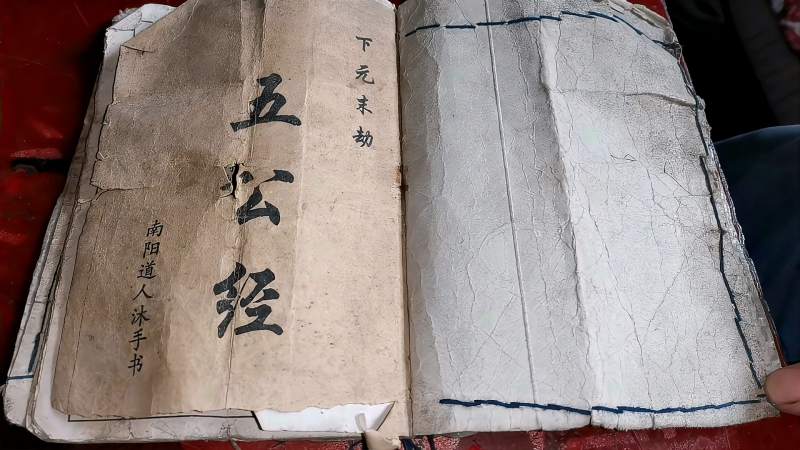 下元末劫
五公经
南阳道人沐手书